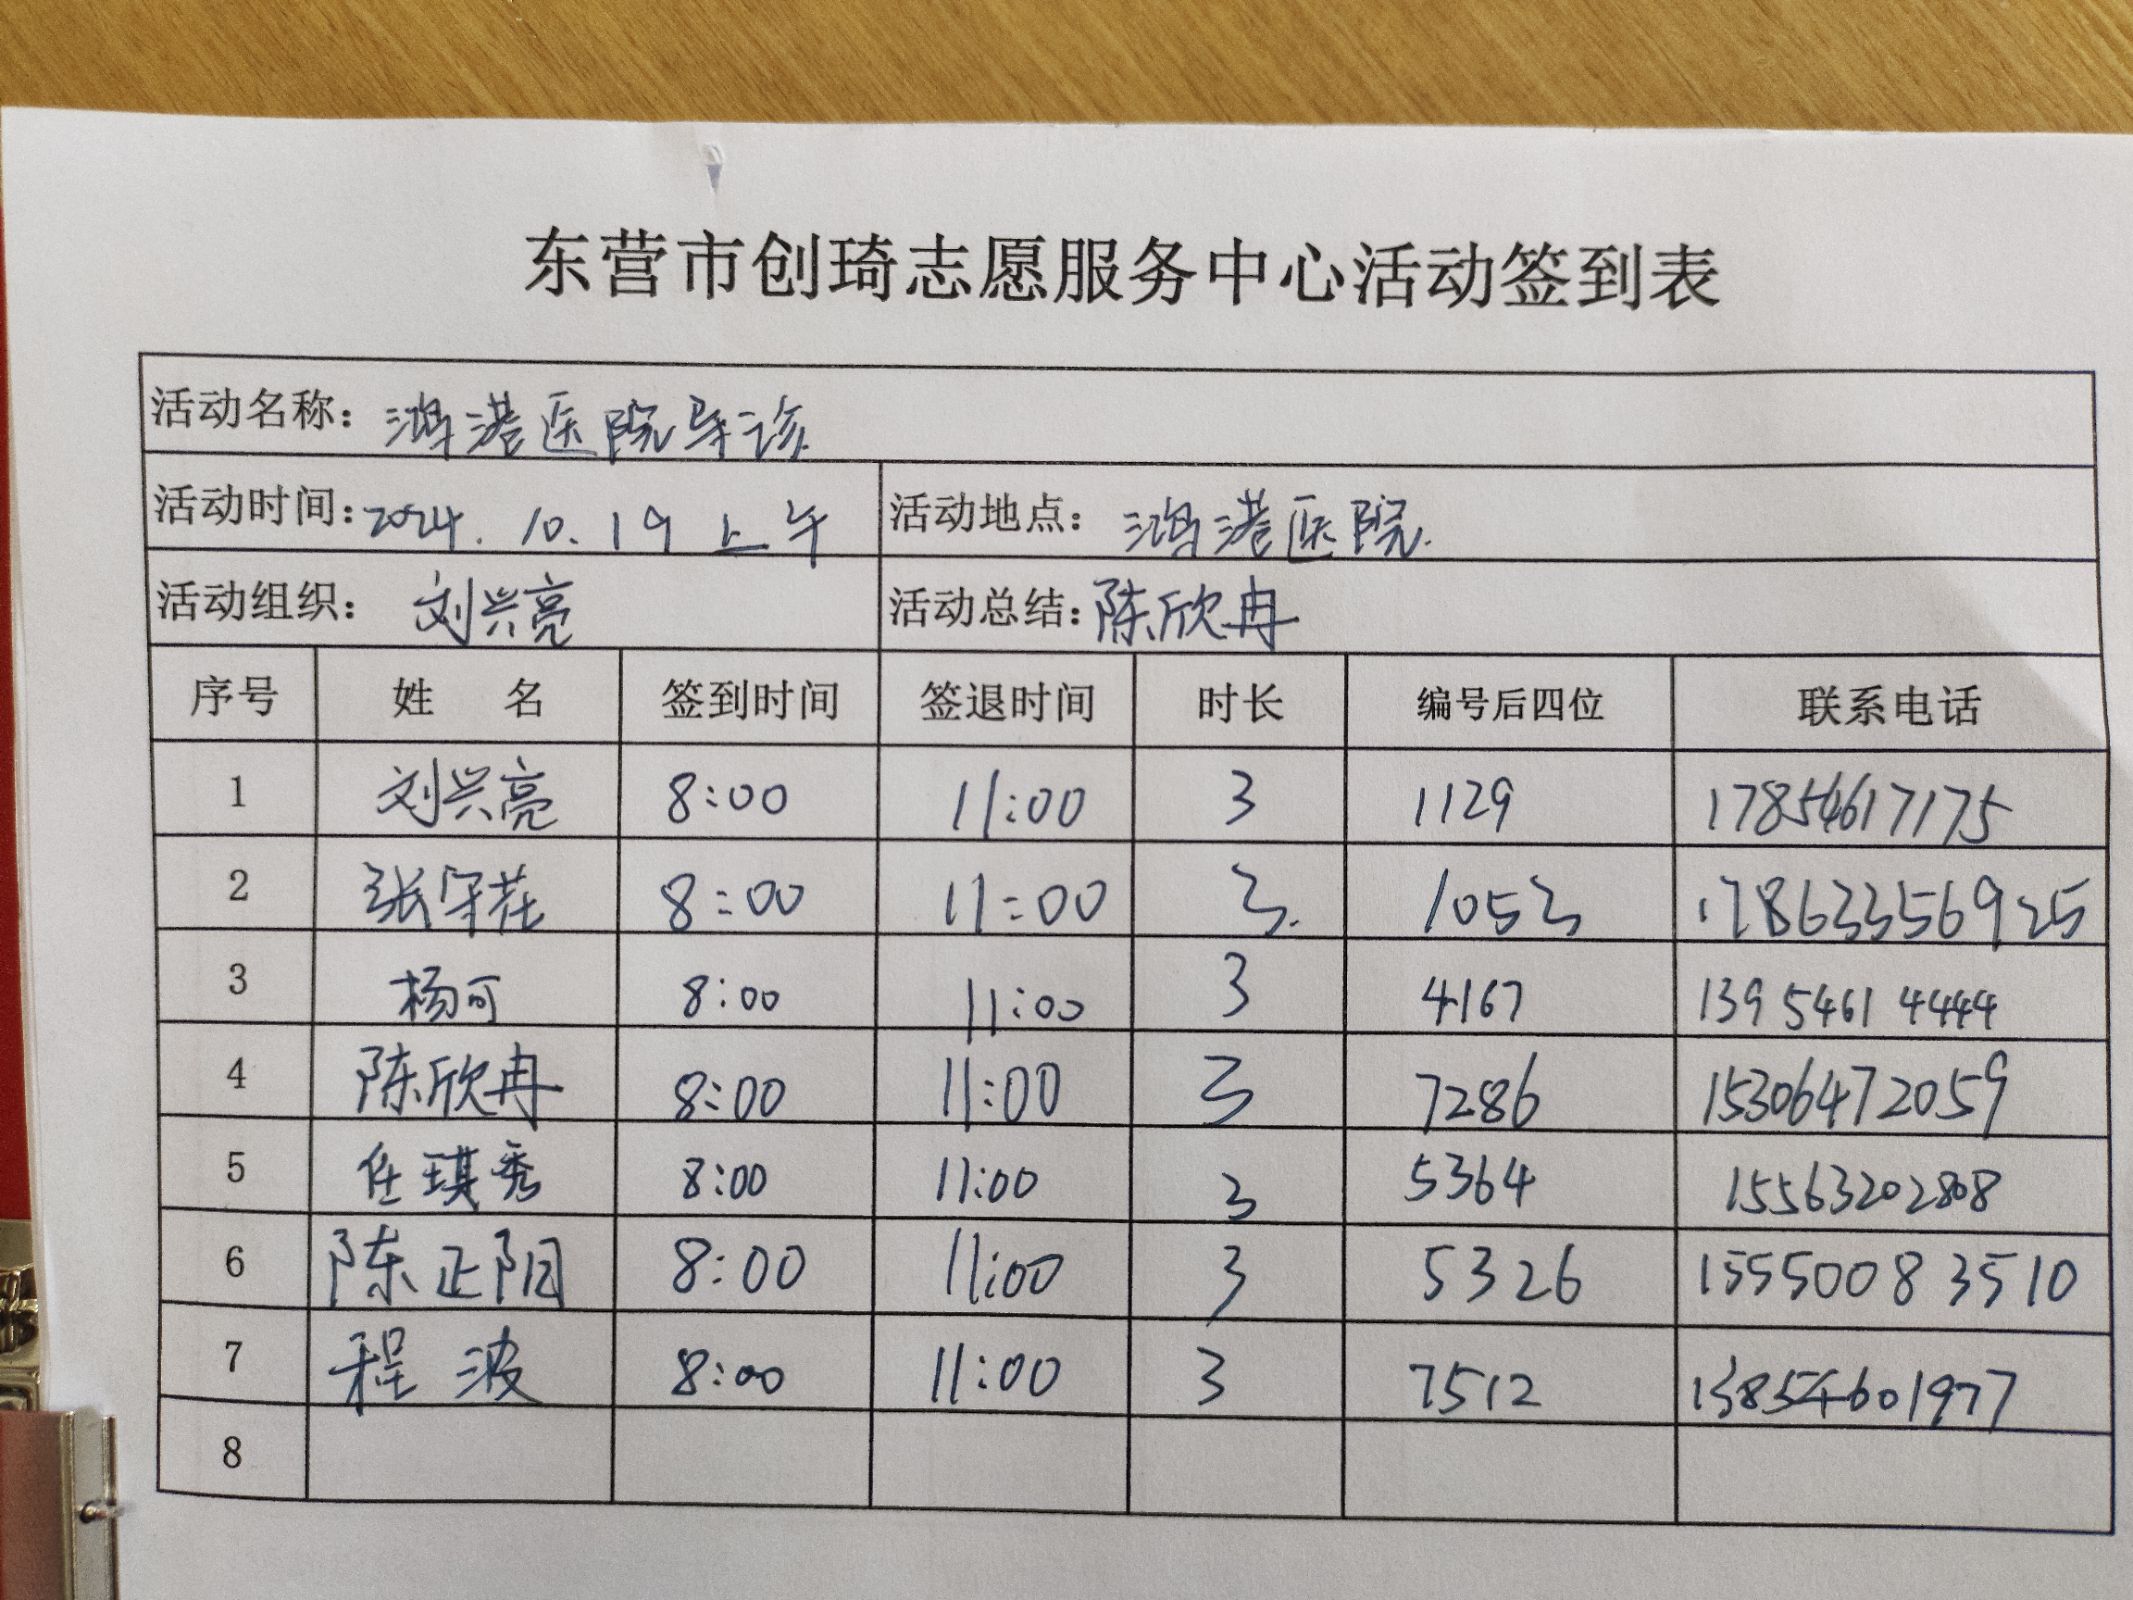 东营市创琦志愿服务中心活动签到表
活动名称：鸿港医院导诊
活动时间：2024.10.19上午 活动地点：鸿港医院.
活动组织：刘兴亮 活动总结：陈欣冉
序号 姓 名 签到时间 签退时间 时长 编号后四位 联系电话
1 刘兴亮 8:00 11:00 3 1129 17854617175
2 张守花 8:00 11:00 3. 1053 17863356925
3 杨可 8:00 11:00 3 4167 139 5461 4444
4 陈欣冉 8:00 11:00 3 7286 15306472059
5 任琪秀 8:00 11:00 3 5364 15563202808
6 陈正阳 8:00 11:00 3 5326 15550083510
7 程波 8:00 11:00 3 7512 13854601977
8